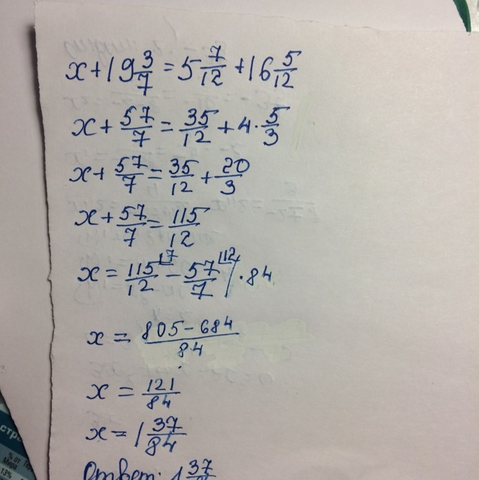 x+19 3/7=5 7/12+16 5/12
x+57/7=35/12+4·5/3
x+57/7=35/12+20/3
x+57/7=115/12
x=115/12|7-57/7|12/·84
x=805-684/84
x=121/84
x=1 37/84
Ответ: 1 37